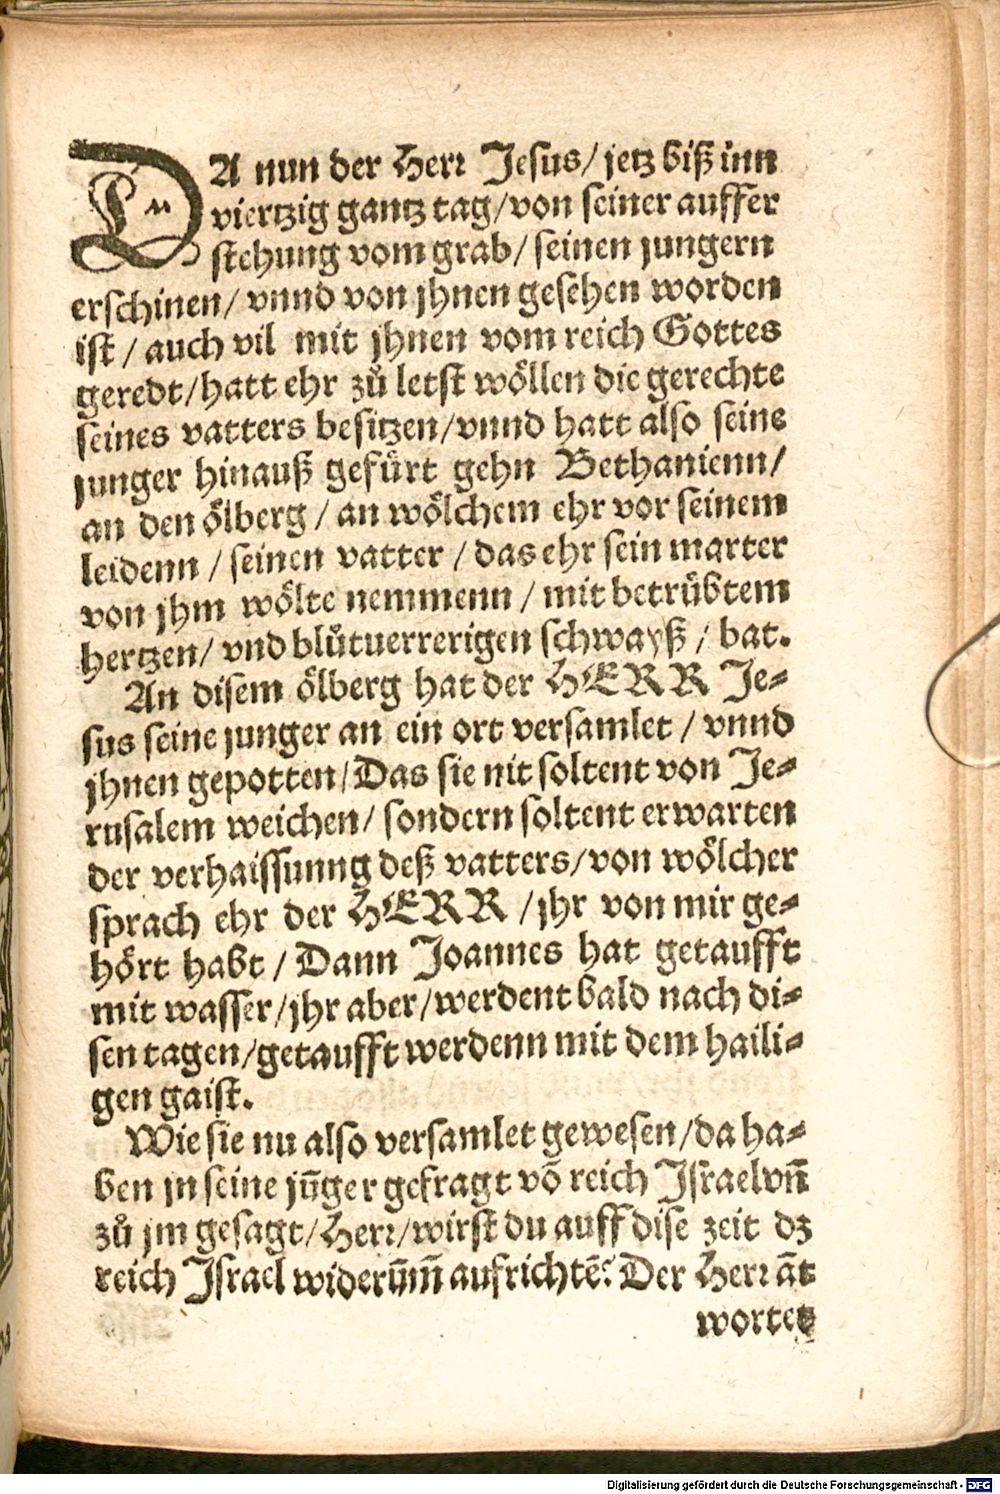 DA nun der Herr Jesus/ jetz biß inn
viertzig gantz tag/von seiner auffer
stehung vom grab/ seinen jungern
erschinen/ vnnd von jhnen gesehen worden
ist / auch vil mit jhnen vom reich Gottes
geredt/hatt ehr zů letst wöllen die gerechte
seines vatters besitzen/vnnd hatt also seine
junger hinauß gefürt gehn Bethanienn/
an den ölberg / an wölchem ehr vor seinem
leidenn / seinen vatter / das ehr sein marter
von jhm wölte nemmenn / mit betrübtem
hertzen/ vnd blůtuerrerigen schwayß / bat.
An disem ölberg hat der HERR Je⸗
sus seine junger an ein ort versamlet / vnnd
jhnen gepotten/Das sie nit soltent von Je⸗
rusalem weichen/ sondern soltent erwarten
der verhaissunng deß vatters/von wölcher
sprach ehr der HERR /jhr von mir ge⸗
hört habt / Dann Joannes hat getaufft
mit wasser/jhr aber/werdent bald nach di⸗
sen tagen/getaufft werdenn mit dem haili⸗
gen gaist.
Wie sie nu also versamlet gewesen/da ha⸗
ben jn seine jũger gefragt võ reich Israel vñ
zů jm gesagt/Herr/wirst du auff dise zeit dz
reich Israel widerũm̃ aufrichtẽ? Der Herr ãt
wortet
Digitalisierung gefördert durch die Deutsche Forschungsgemeinschaft - DFG